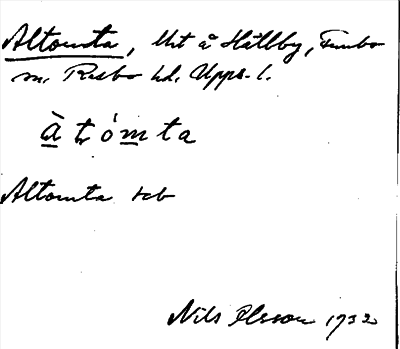 Altomta, Uht å Hällby, Funbo
sn. Rasbo hd. Upps. l.
à̱ tṛ ó m̱ ta
Altomta tcb
Nils Olsson 1932